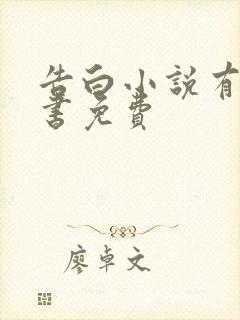 告白小说有
書免費
廖卓文